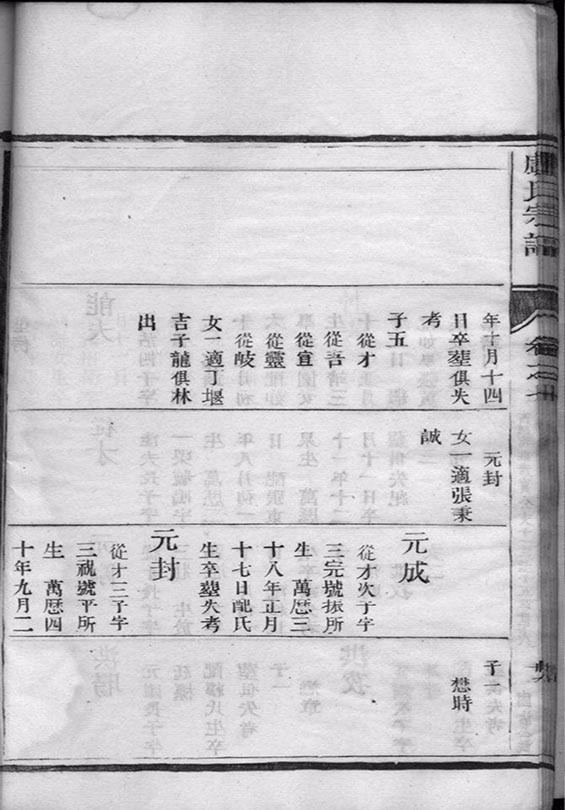 盧氏宗譜
年十月十四
日卒塟俱失
考
子五
從才
從吾
從宜
從靈
從岐
女一適丁堰
吉子龍俱林
出
元封
女一適張秉
誠
元成
從才次子字
三完號振所
生 萬歷三
十八年正月
十七日配氏
生卒塟失考
元封
從才三子字
三祝號平所
生 萬歷四
十年九月二
子一
懋時